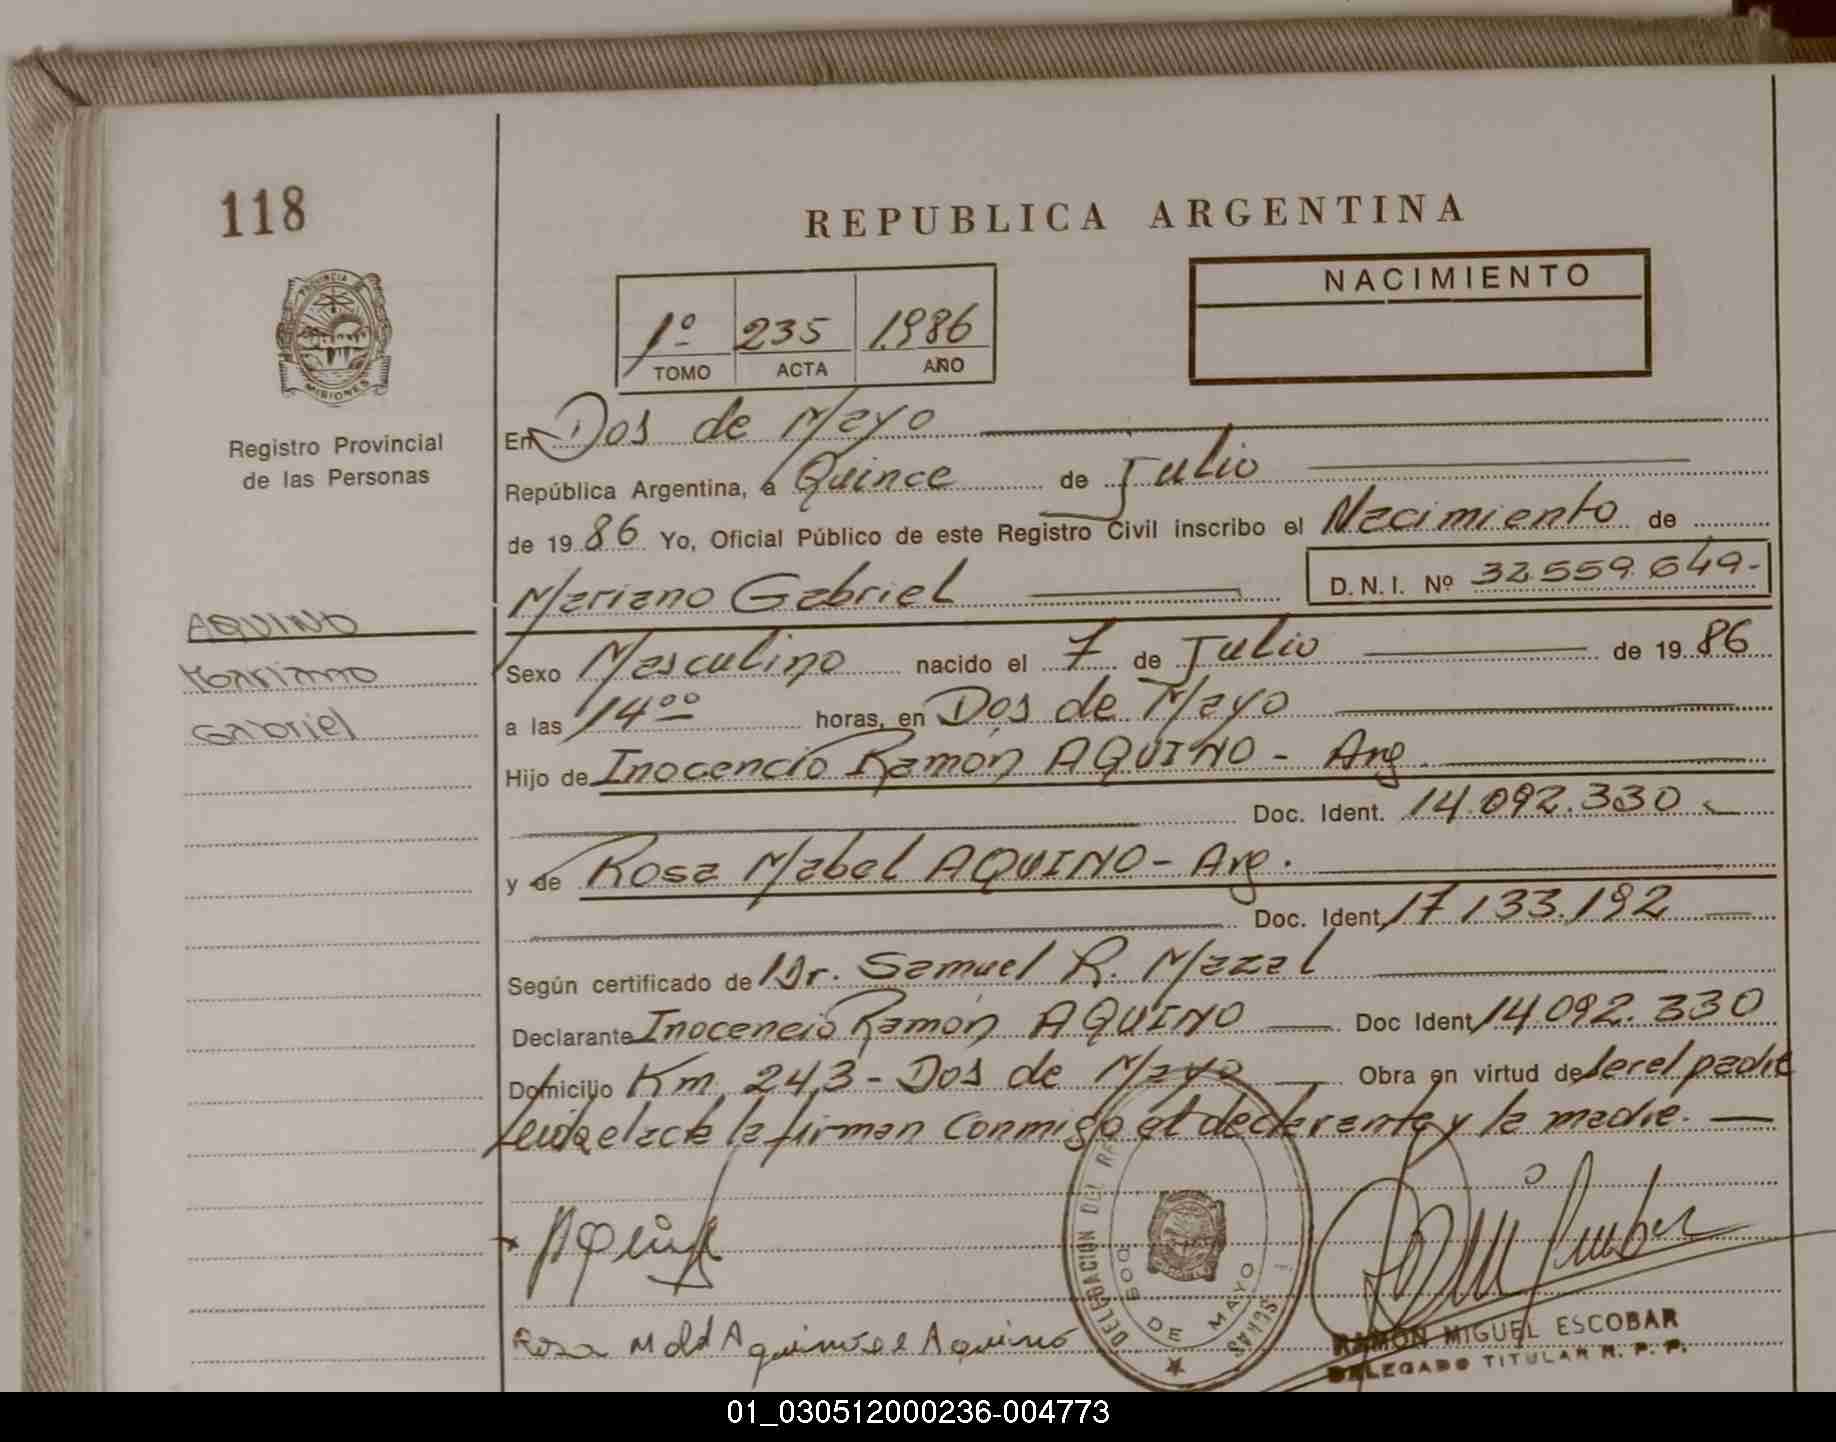 118
REPUBLICA ARGENTINA
PROVINCIA DE
MISIONES
Registro Provincial
de las Personas
NACIMIENTO
1º 235 1986
TOMO ACTA AÑO
En Dos de Mayo
República Argentina, a Quince de Julio
de 1986 Yo, Oficial Público de este Registro Civil inscribo el Nacimiento de
Mariano Gabriel D.N.I. Nº 32.559.649.-
AQUINO
Mariano
Gabriel
Sexo Masculino nacido el 7 de Julio de 1986
a las 14ºº horas, en Dos de Mayo
Hijo de Inocencio Ramón AQUINO - Arg.
Doc. Ident. 14.092.330
y de Rosa Mabel AQUINO - Arg.
Doc. Ident. 17.133.192
Según certificado de Dr. Samuel R. Mazal
Declarante Inocencio Ramón AQUINO Doc Ident 14.092.330
Domicilio Km. 243 - Dos de Mayo Obra en virtud de ser el padre
Leida el acta la firman conmigo el declarante y la madre.
DELEGACION DEL
DOS DE MAYO
Rosa Aquino de Aquino
RAMON MIGUEL ESCOBAR
DELEGADO TITULAR R. P. P.
01_030512000236-004773